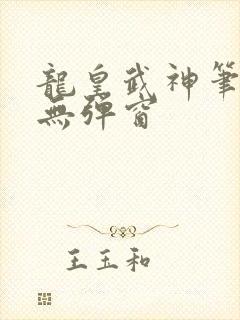 龍皇武神筆
無彈窗
王玉和